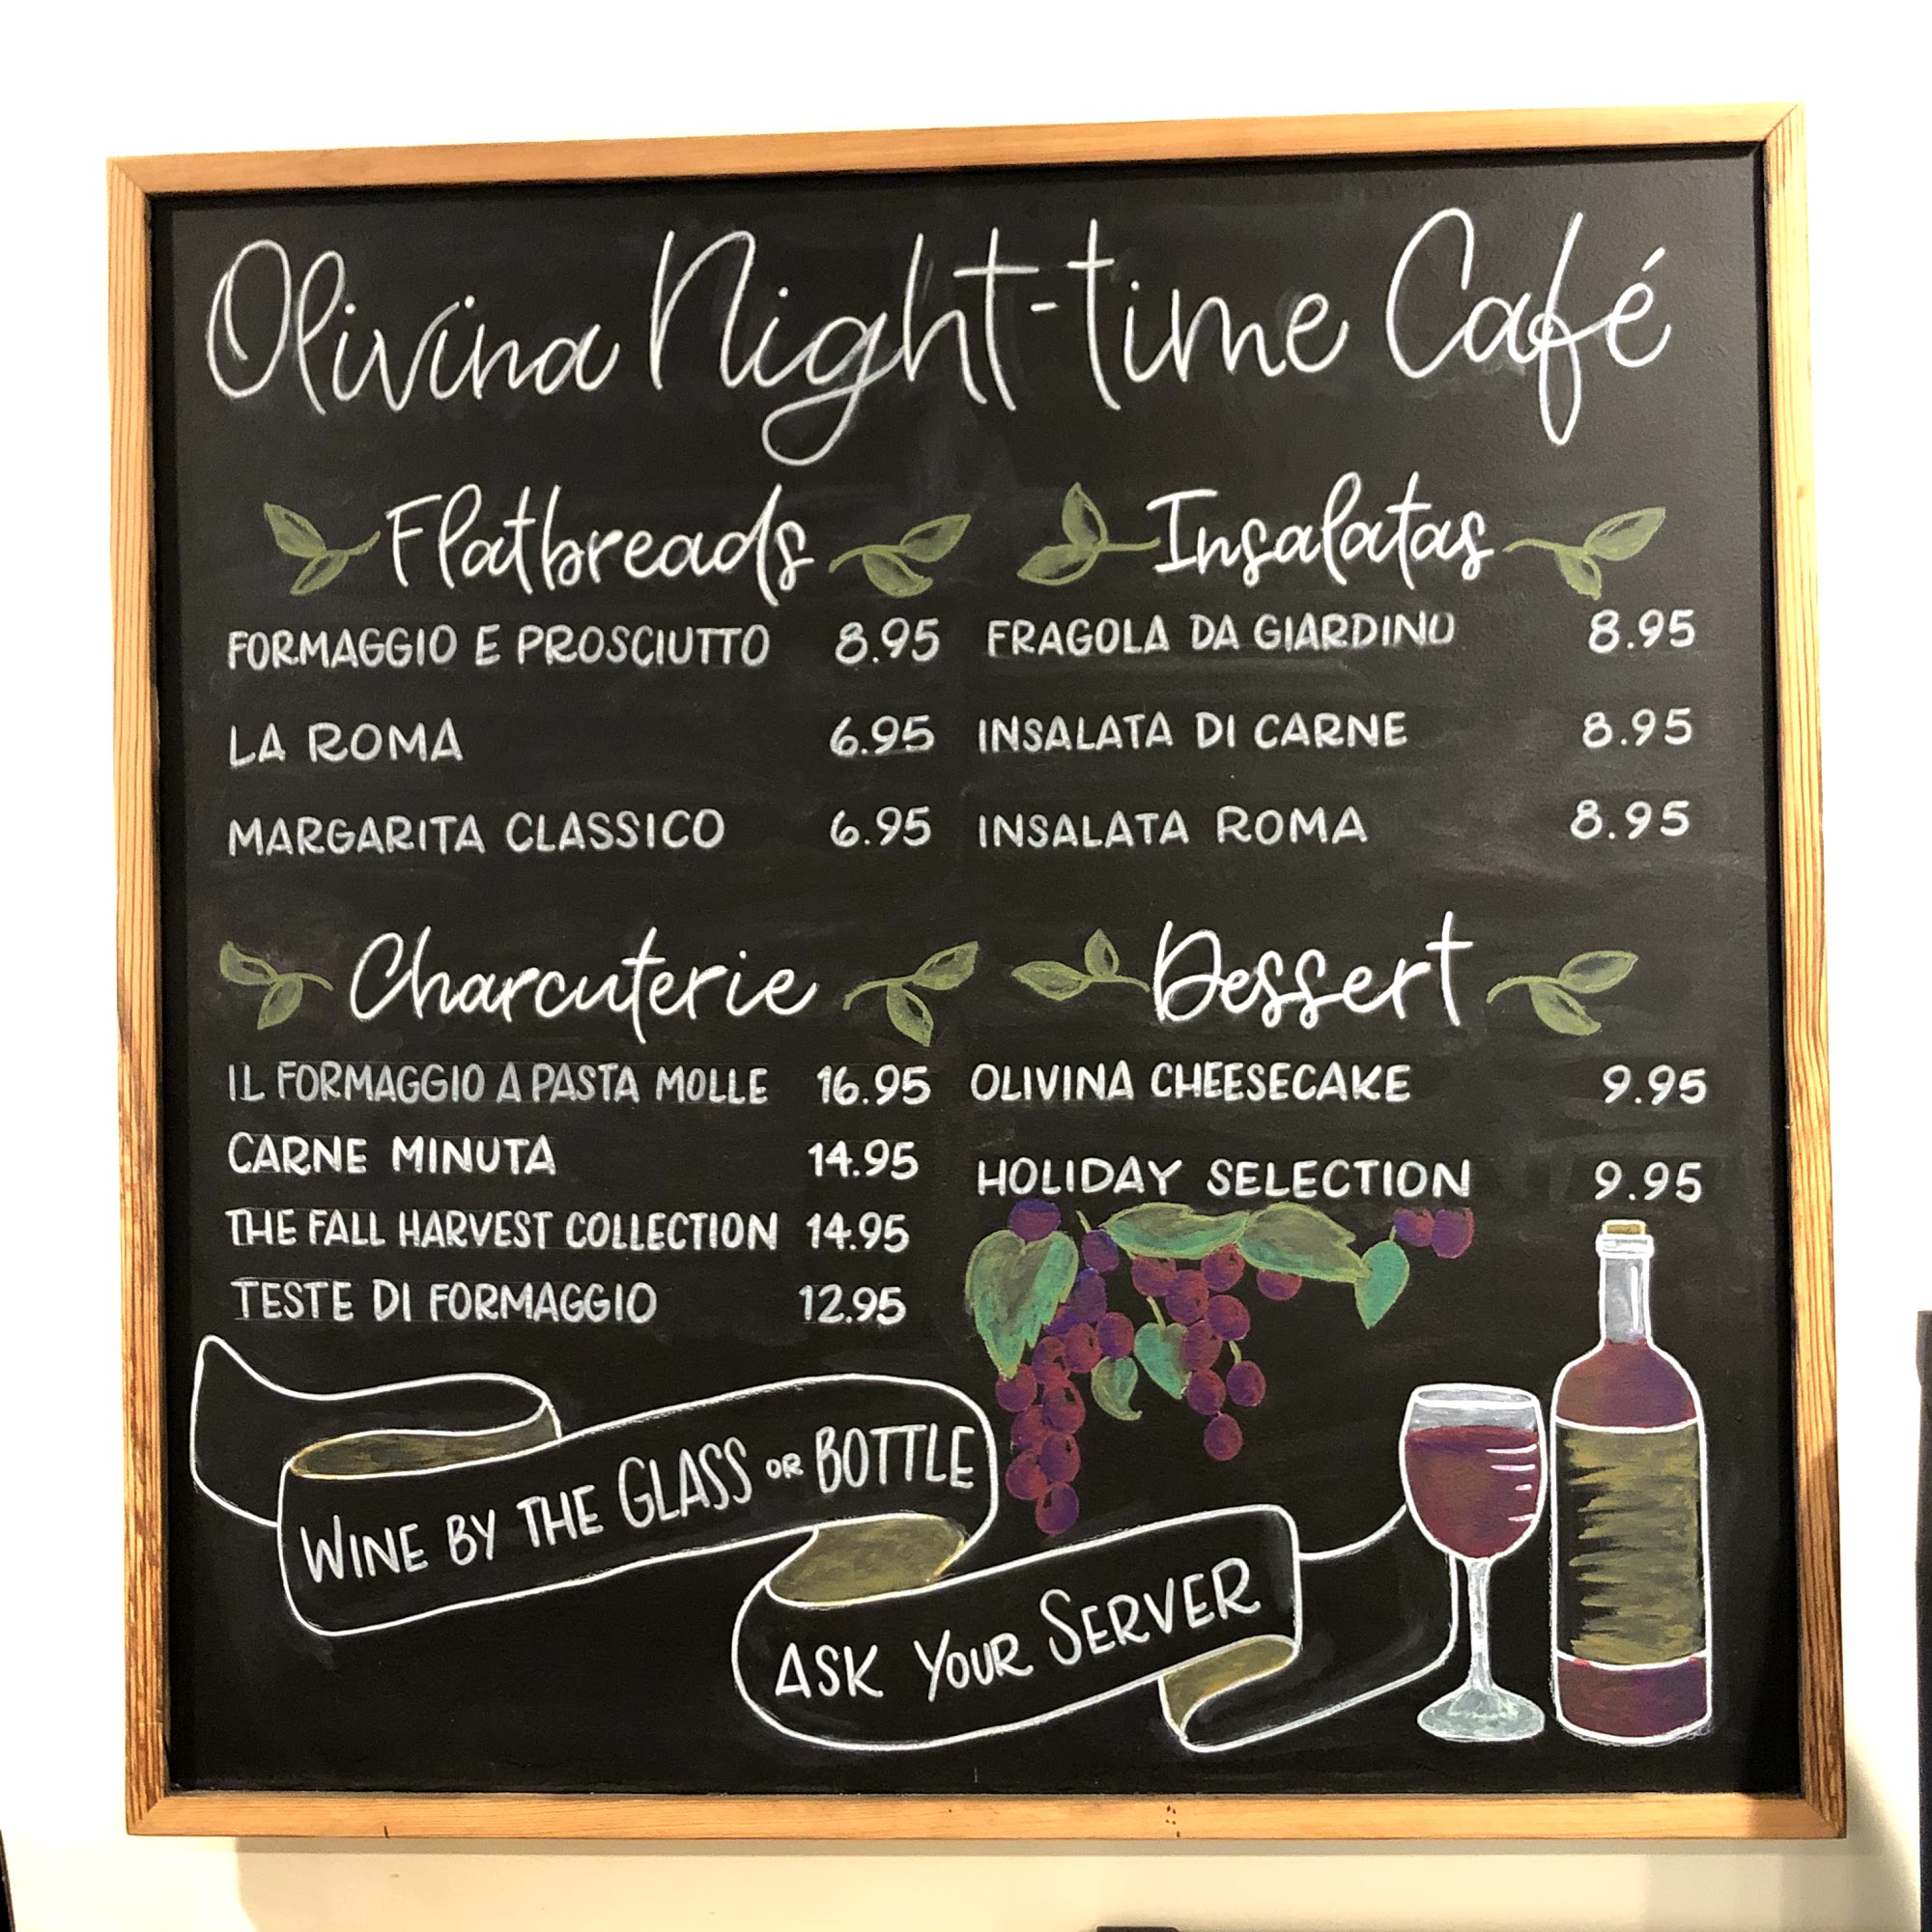 Olivina Night-time Café
Flatbreads
FORMAGGIO E PROSCIUTTO 8.95
LA ROMA 6.95
MARGARITA CLASSICO 6.95
Insalatas
FRAGOLA DA GIARDINO 8.95
INSALATA DI CARNE 8.95
INSALATA ROMA 8.95
Charcuterie
IL FORMAGGIO A PASTA MOLLE 16.95
CARNE MINUTA 14.95
THE FALL HARVEST COLLECTION 14.95
TESTE DI FORMAGGIO 12.95
Dessert
OLIVINA CHEESECAKE 9.95
HOLIDAY SELECTION 9.95
WINE BY THE GLASS OR BOTTLE
ASK YOUR SERVER